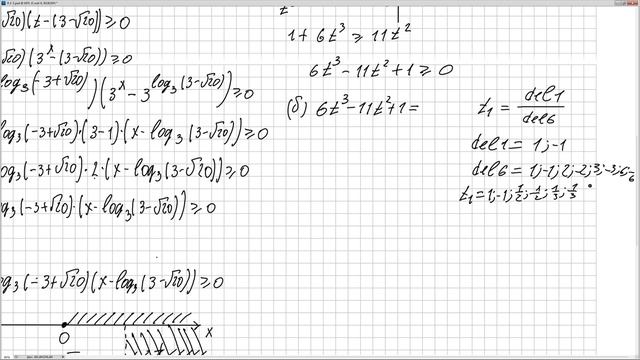 √20)(t-(3-√20))≥0
√20)(3^x-(3-√20))≥0
log₃(-3+√20))(3^x-3^log₃(3-√20))≥0
log₃(-3+√20)·(3-1)·(x-log₃(3-√20))≥0
log₃(-3+√20)·2·(x-log₃(3-√20))≥0
log₃(-3+√20)·(x-log₃(3-√20))≥0
log₃(-3+√20)(x-log₃(3-√20))≥0
0 x
1+6t³≥11t²
6t³-11t²+1≥0
(б) 6t³-11t²+1=
t₁ = del1/del6
del1 = 1;-1
del6 = 1;-1;2;-2;3;-3;6;-6
t₁=1;-1;1/2;-1/2;1/3;-1/3